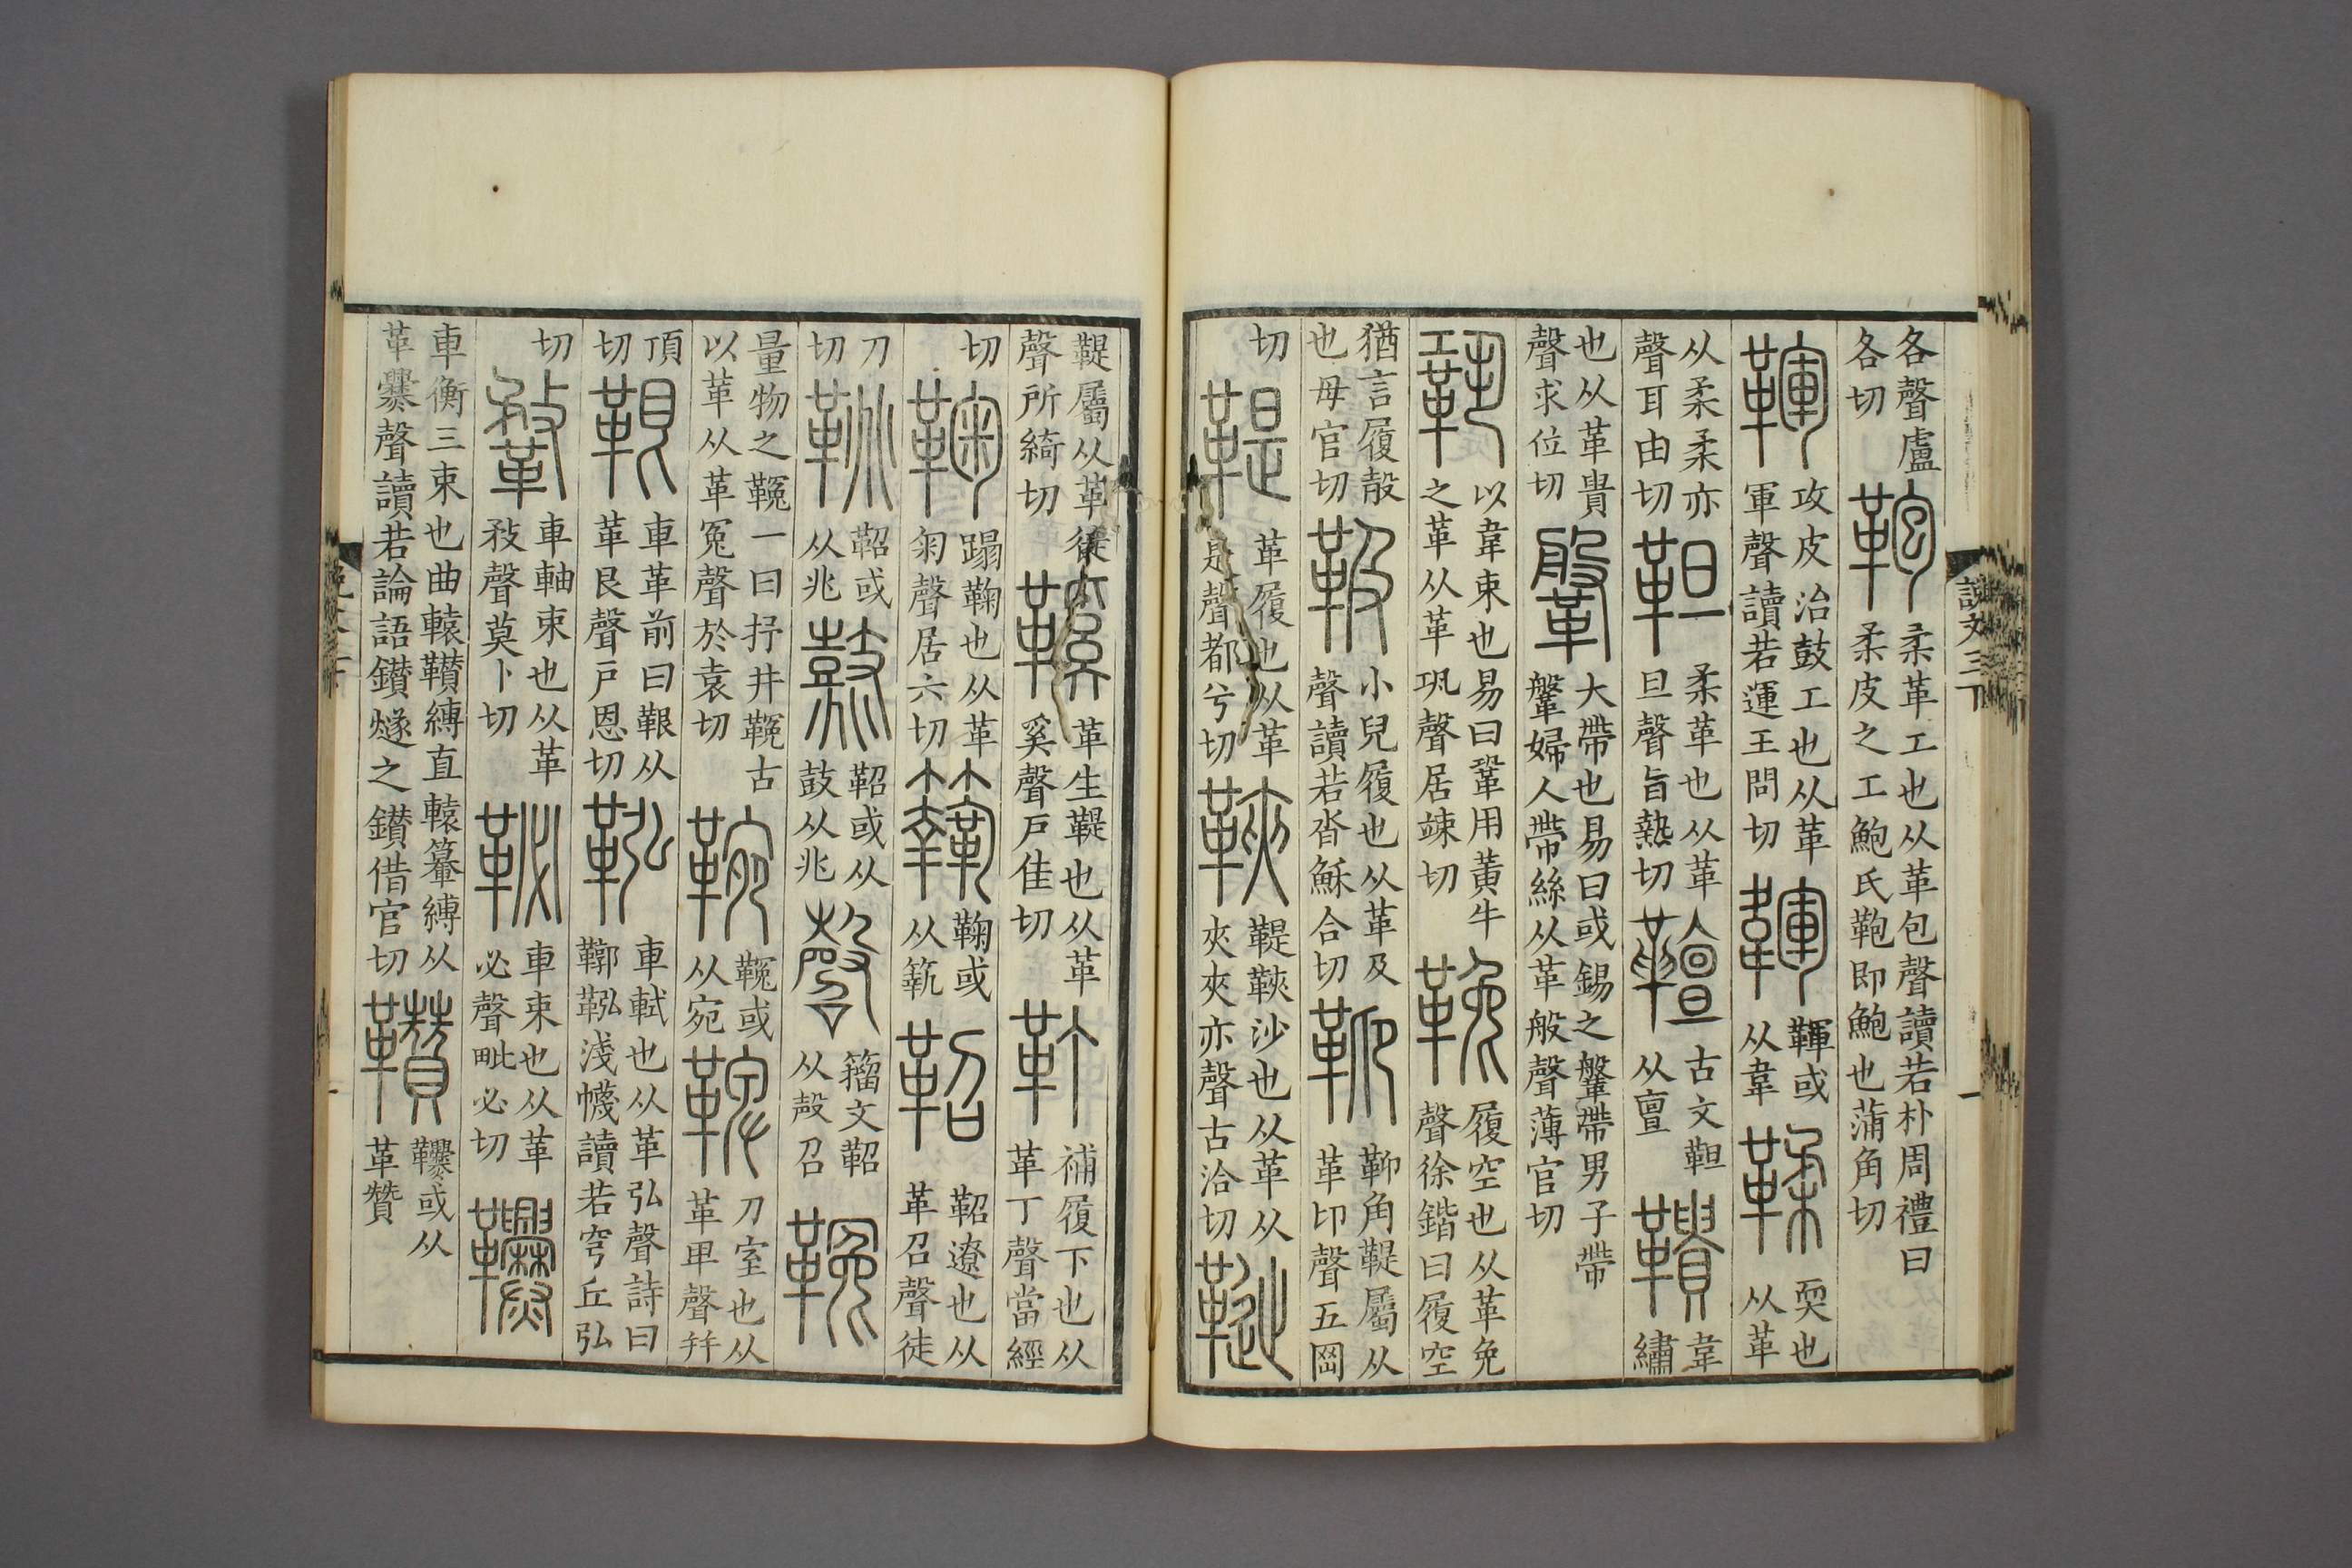 各聲盧各切鞄柔革工也从革包聲讀若朴周禮曰柔皮之工鮑氏鞄即鮑也蒲角切
鞰攻皮治鼓工也从革軍聲讀若運王問切韗鞰或从韋鞣耎也从革
从柔柔亦聲耳由切靼柔革也从革旦聲旨熱切古文靼从亶鞼韋繡
也从革貴聲求位切鞶大帶也易曰或錫之鞶帶男子帶鞶婦人帶絲从革般聲薄官切
鞏以韋束也易曰鞏用黃牛之革从革巩聲居竦切鞔履空也从革免聲徐鍇曰履空
猶言履殼也母官切靸小兒履也从革及聲讀若沓穌合切䩕䩕角鞮屬从革卬聲五岡
切鞮革履也从革是聲都兮切䩡鞮䩡沙也从革从夾夾亦聲古洽切
說文三下
一
鞮屬从革徙聲所綺切鞵革生鞮也从革奚聲戶佳切靪補履下也从革丁聲當經
切鞠蹋鞠也从革匊聲居六切鞠或从鞀鞀遼也从革召聲徒
刀切鞉鞀或从兆鼗鞀或从鼓从兆籒文鞀从殸召
量物之一曰抒井古以革从革冤聲於袁切䩩或从宛鞞刀室也从革卑聲并
頂切鞎車革前曰鞎从革艮聲戶恩切鞃車軾也从革弘聲詩曰鞹鞃淺幭讀若穹丘弘
切鞪車軸束也从革敄聲莫卜切䩛車束也从革必聲毗必切
車衡三束也曲轅縛直轅縛从革爨聲讀若論語鑽燧之鑽借官切或从革贊